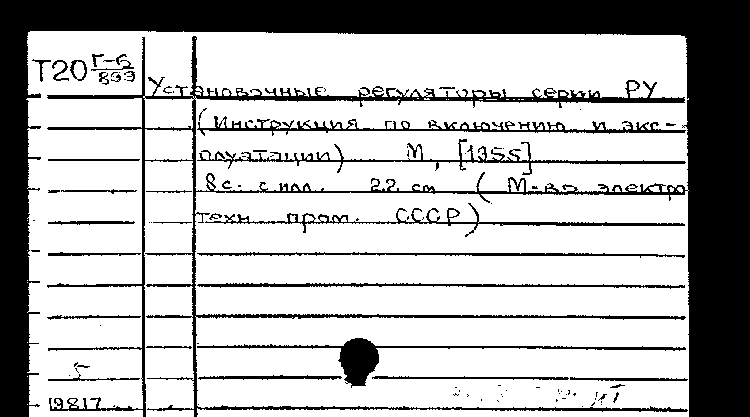 Т20 Г-6/899
Установочные регуляторы серии РУ
(Инструкция по включению и экс-
плуатации) М, [1955]
8 с. с илл. 22 cm (М-во электро
техн пром. СССР)
5
19817